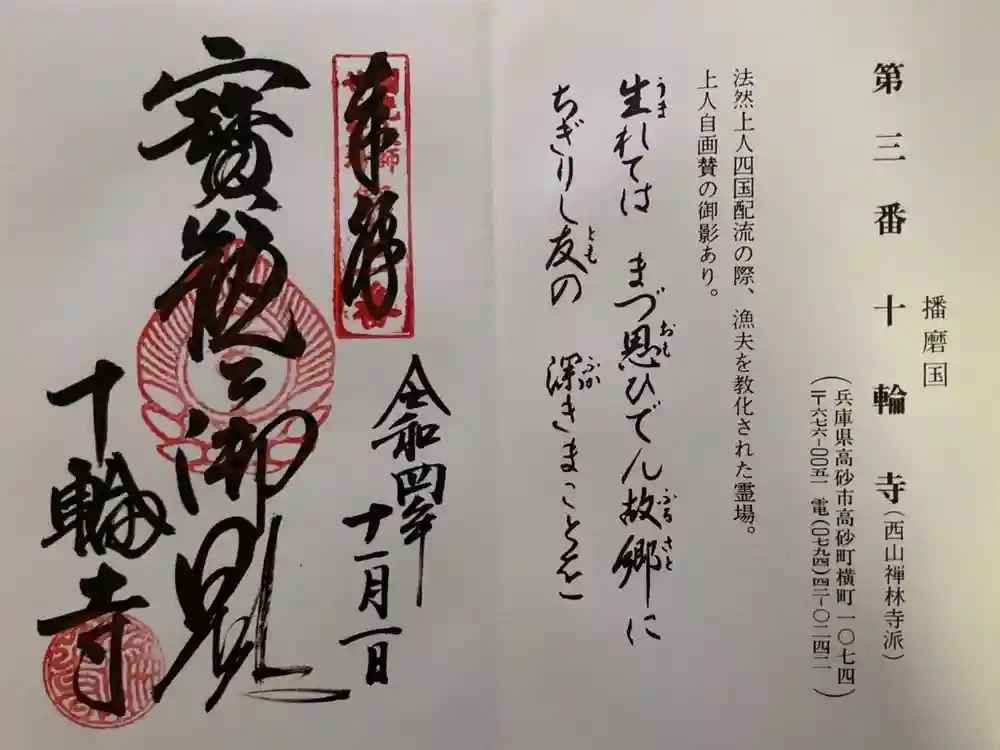 播磨国
第三番十輪寺(西山禅林寺派)
(兵庫県高砂市高砂町横町一〇七四
〒六七六-〇〇五一 電(〇七九四)四二-〇二四二)
法然上人四国配流の際、漁夫を教化された霊場。
上人自画賛の御影あり。
生れては まづ思ひでん故郷に
うま おも ふるさと
ちぎりし友の 深きまことを
とも ふか
奉拝
令和四年
十一月一日
寶瓶之御影
十輪寺